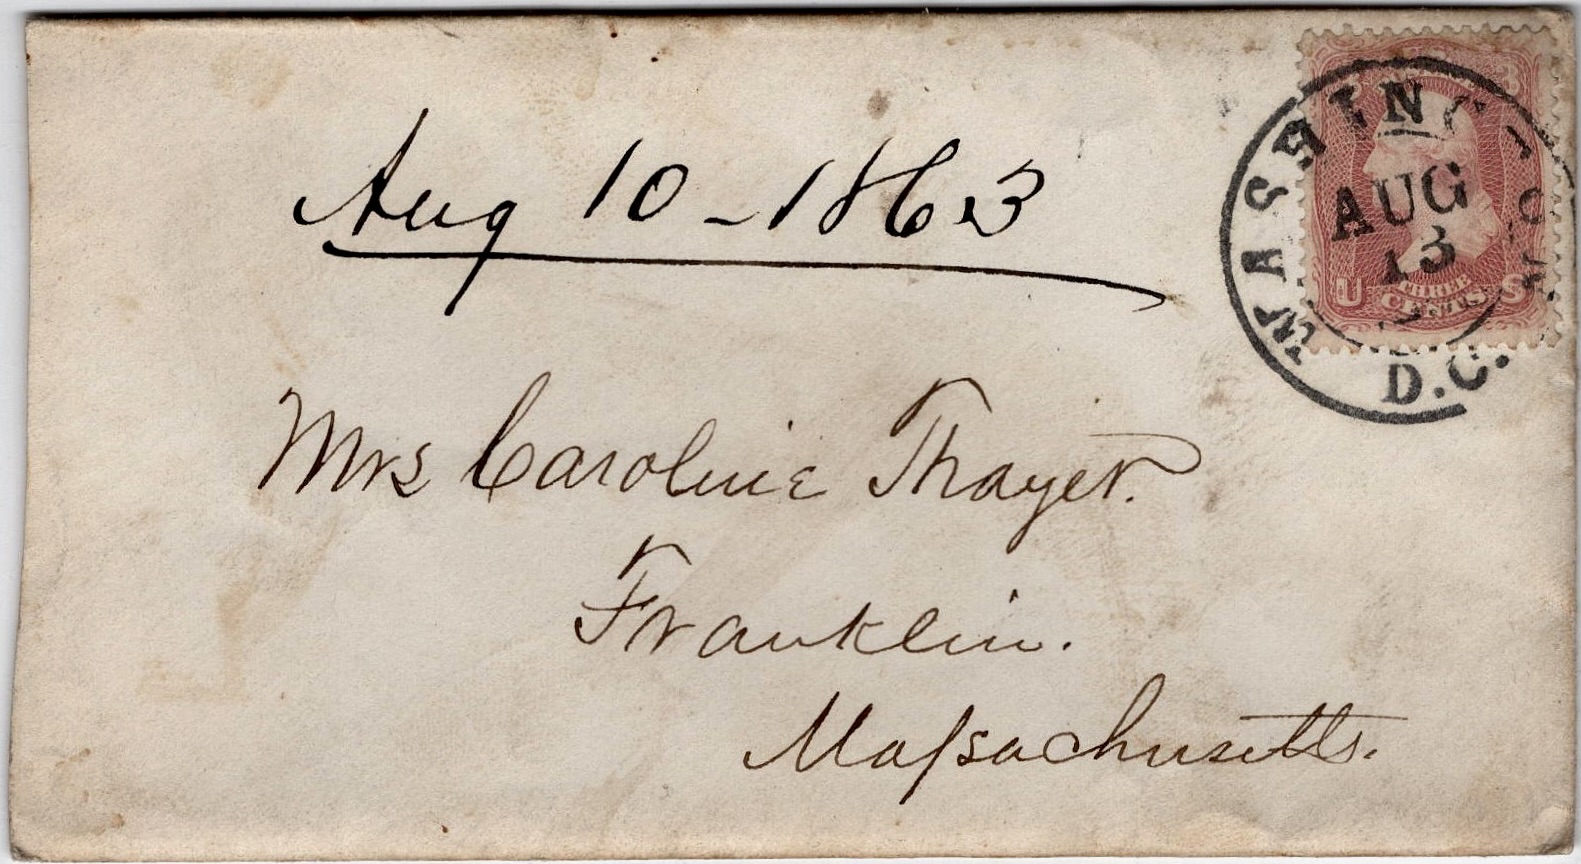 Aug 10 - 1863
WASHINGTON
AUG
13
D.C.
U S
THREE
CENTS
3
Mrs Caroline Thayer.
Franklin.
Maſsachusetts.